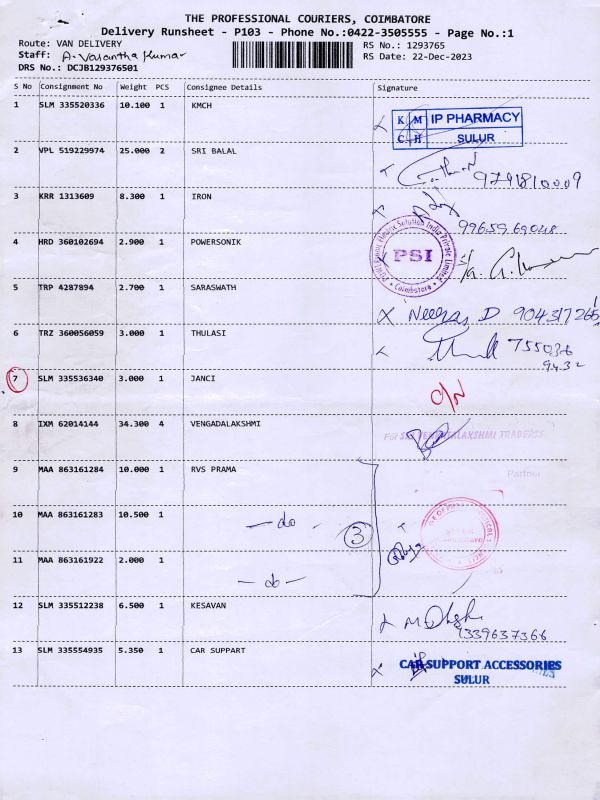 THE PROFESSIONAL COURIERS, COIMBATORE
Delivery Runsheet - P103 - Phone No.:0422-3505555 - Page No.:1
Route: VAN DELIVERY RS No.: 1293765
Staff: A. Vasantha Kumar RS Date: 22-Dec-2023
DRS No.: DCJB129376501
S No Consignment No Weight PCS Consignee Details Signature
1 SLM 335520336 10.100 1 KMCH
K M C H IP PHARMACY
SULUR
2 VPL 519229974 25.000 2 SRI BALAL
9791810009
3 KRR 1313609 8.300 1 IRON
99659 69048
4 HRD 360102694 2.900 1 POWERSONIK
PSI
Coimbatore
5 TRP 4287894 2.700 1 SARASWATH
Neeraj D 904317265
6 TRZ 360056059 3.000 1 THULASI
755036
9432
7 SLM 335536340 3.000 1 JANCI
O/N
8 IXM 62014144 34.300 4 VENGADALAKSHMI
For SRI VENGADALAKSHMI TRADERSS
Partner
9 MAA 863161284 10.000 1 RVS PRAMA
10 MAA 863161283 10.500 1
- do -
3
11 MAA 863161922 2.000 1
- do -
12 SLM 335512238 6.500 1 KESAVAN
1339637366
13 SLM 335554935 5.350 1 CAR SUPPART
CAR SUPPORT ACCESSORIES
SULUR